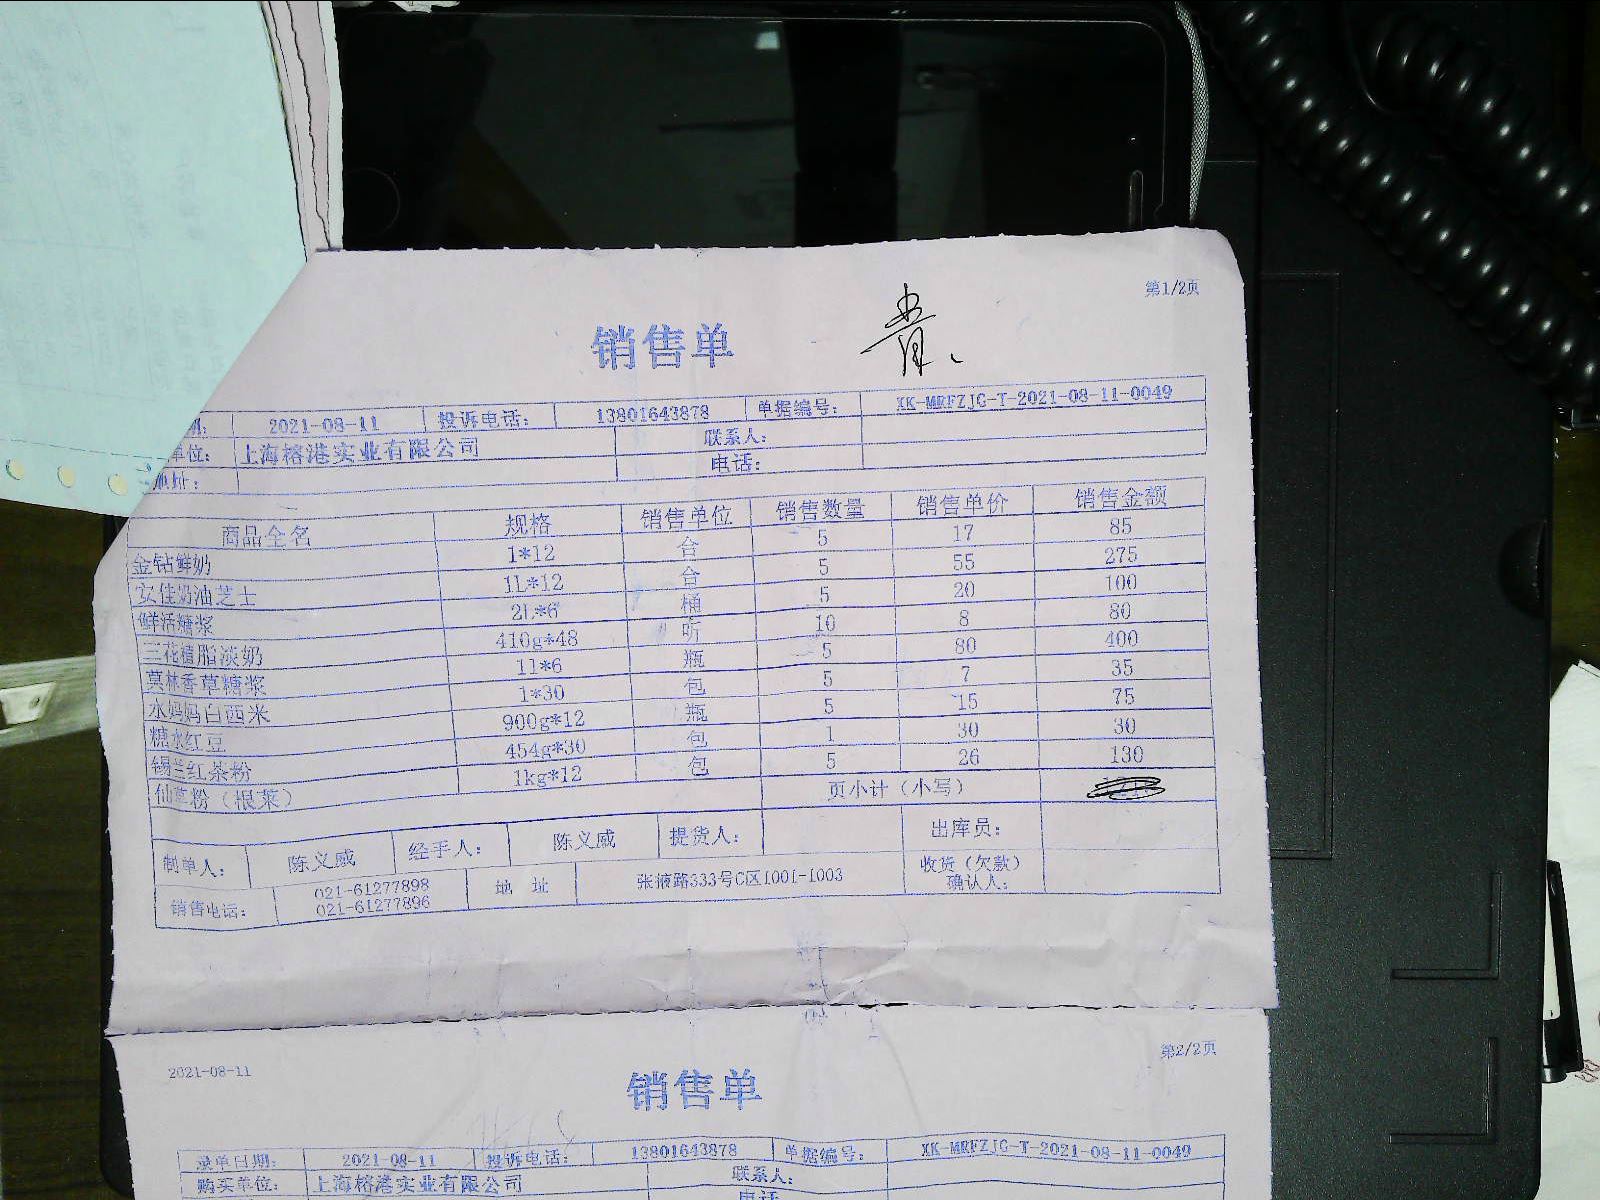 第1/2页
销售单
2021-08-11 投诉电话: 13801643878 单据编号: XK-MRFZJC-T-2021-08-11-0049
单位: 上海榕港实业有限公司 联系人:
地址: 电话:
商品全名 规格 销售单位 销售数量 销售单价 销售金额
金钻鲜奶 1*12 合 5 17 85
安佳奶油芝士 1L*12 合 5 55 275
鲜活糖浆 2L*6 桶 5 20 100
三花植脂淡奶 410g*48 听 10 8 80
莫林香草糖浆 1l*6 瓶 5 80 400
水妈妈白西米 1*30 包 5 7 35
糖水红豆 900g*12 瓶 5 15 75
锡兰红茶粉 454g*30 包 1 30 30
仙草粉（根莱） 1kg*12 包 5 26 130
页小计（小写）
制单人: 陈义威 经手人: 陈义威 提货人: 出库员:
销售电话: 021-61277898 地 址 张掖路333号C区1001-1003 收货（欠款）
021-61277896 确认人:
第2/2页
2021-08-11
销售单
录单日期: 2021-08-11 投诉电话: 13801643878 单据编号: XK-MRFZJC-T-2021-08-11-0049
购买单位: 上海榕港实业有限公司 联系人:
电话